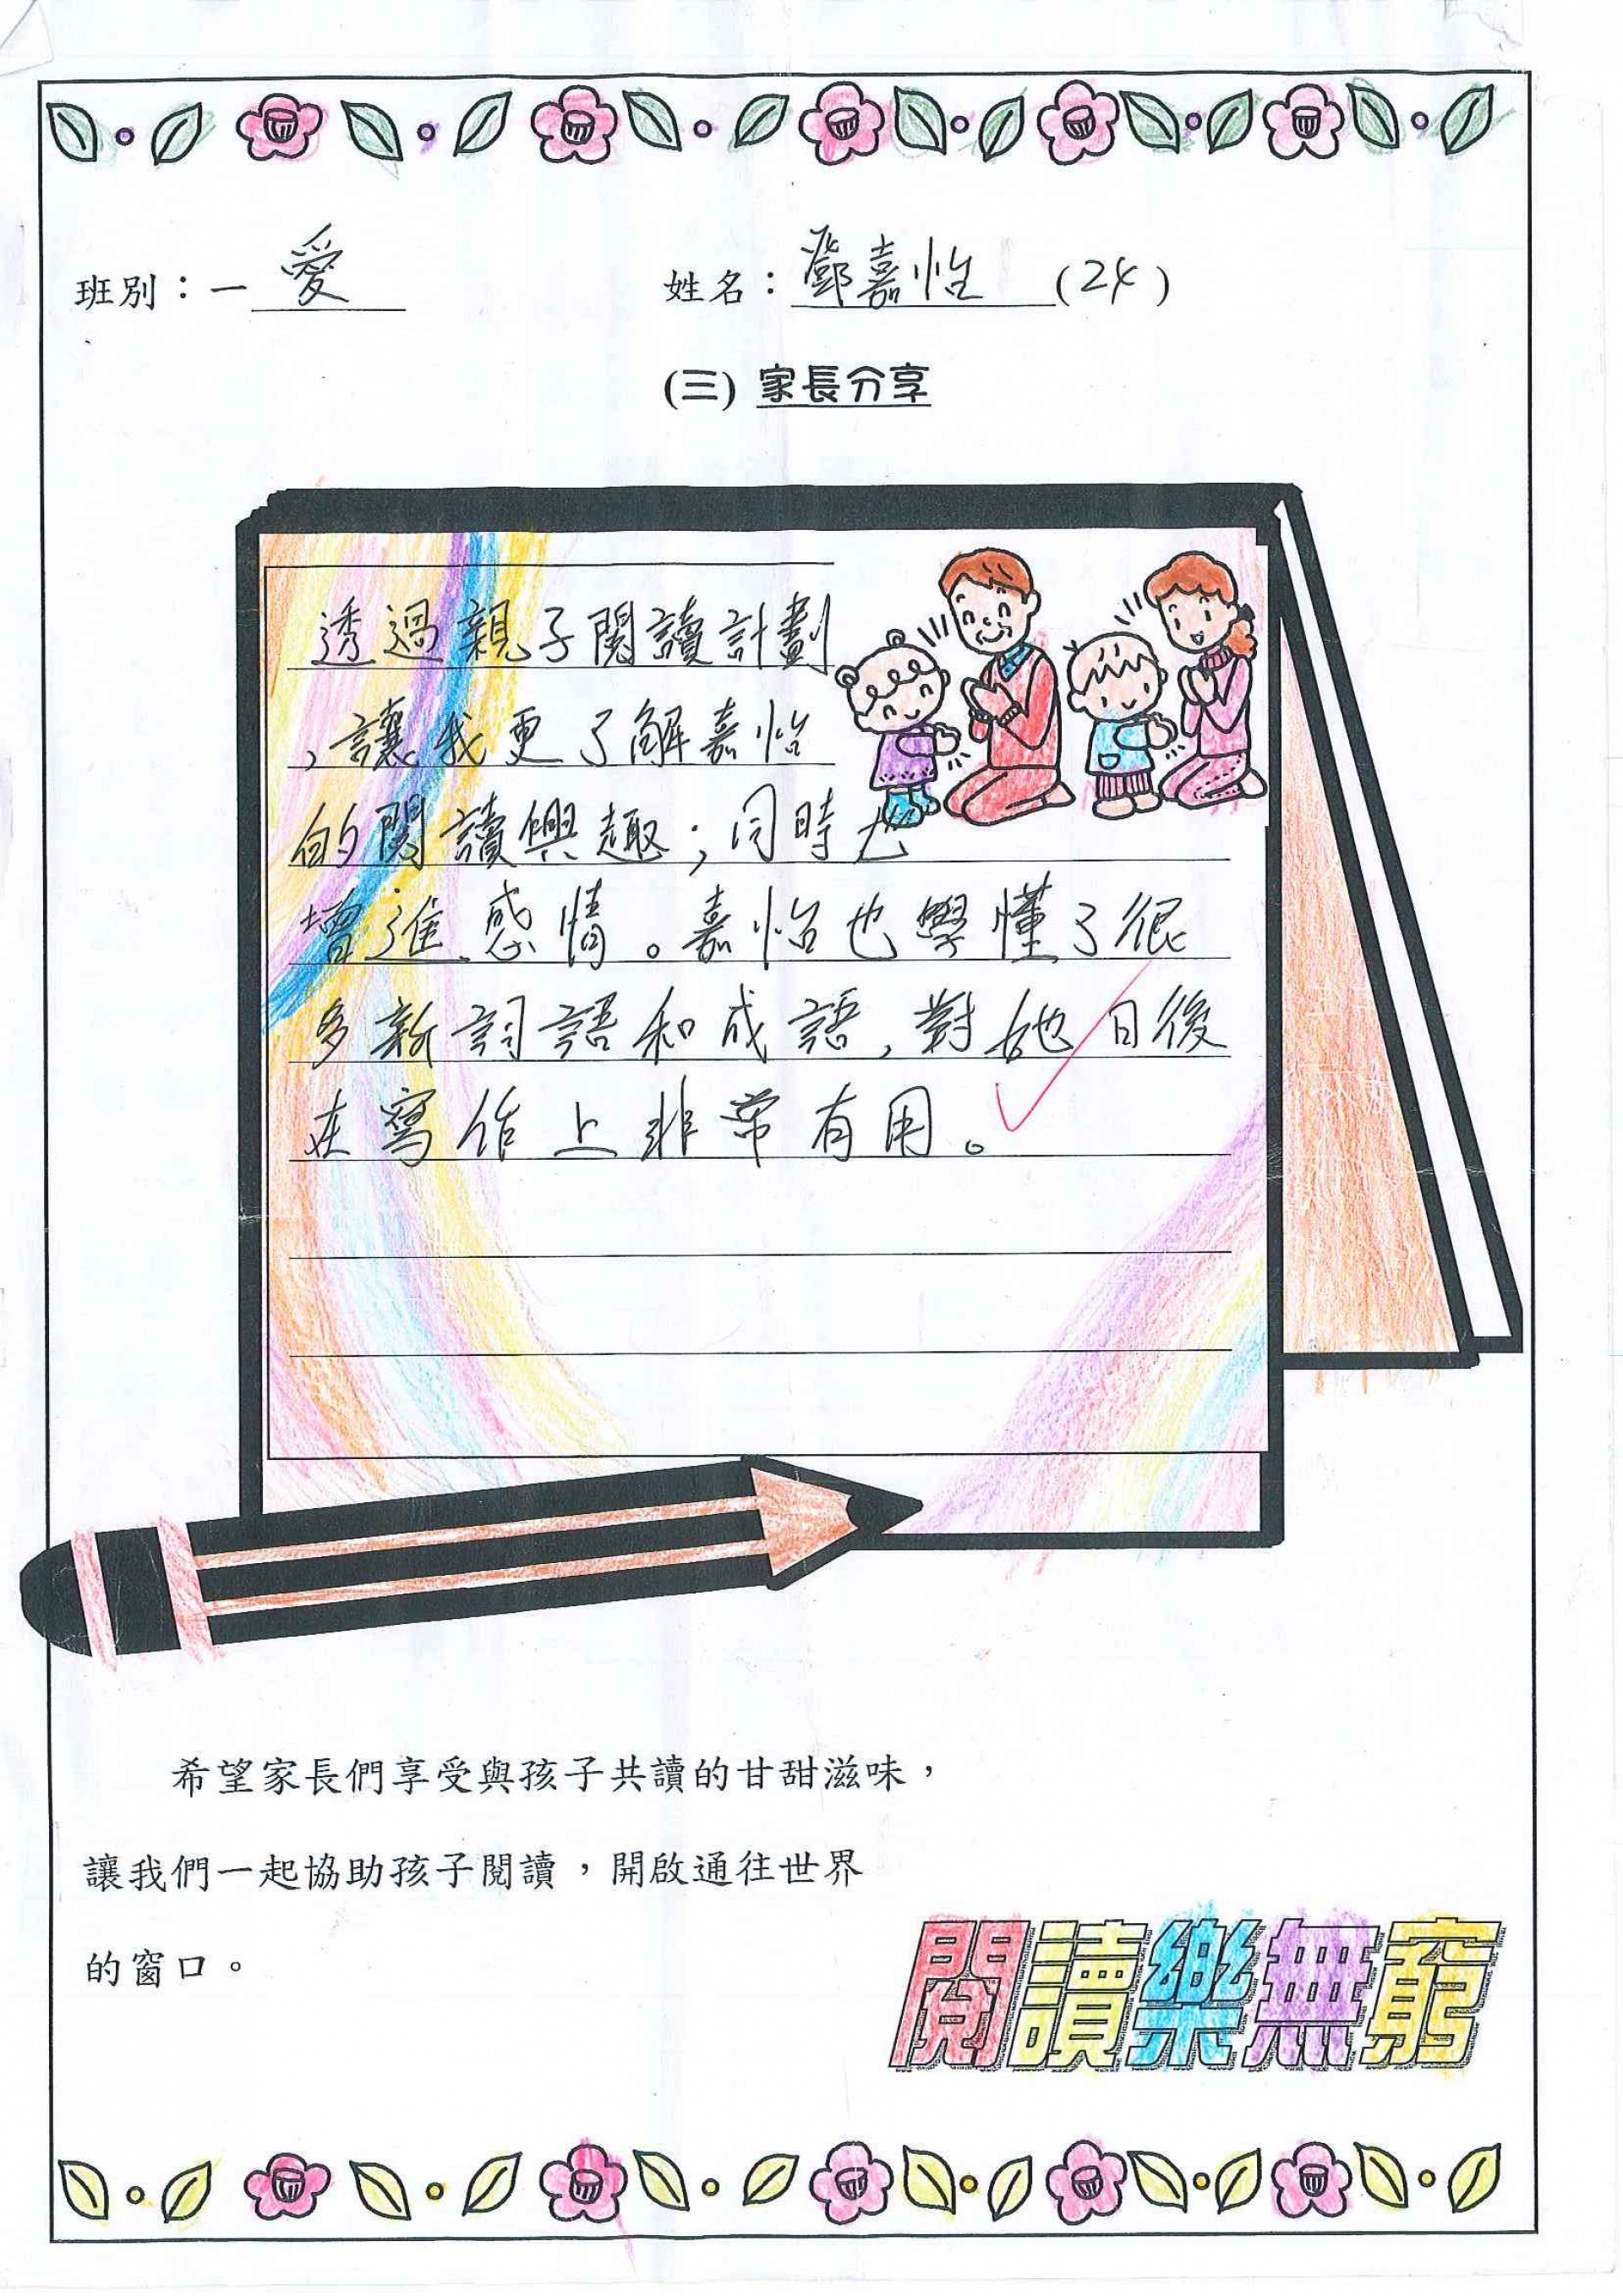 班別：一 愛 姓名：鄧嘉怡 (24)
(三) 家長分享
透過親子閱讀計劃
，讓我更了解嘉怡
的閱讀興趣；同時也
增進感情。嘉怡也學懂了很
多新詞語和成語，對她日後
在寫作上非常有用。
希望家長們享受與孩子共讀的甘甜滋味，
讓我們一起協助孩子閱讀，開啟通往世界
的窗口。
閱讀樂無窮